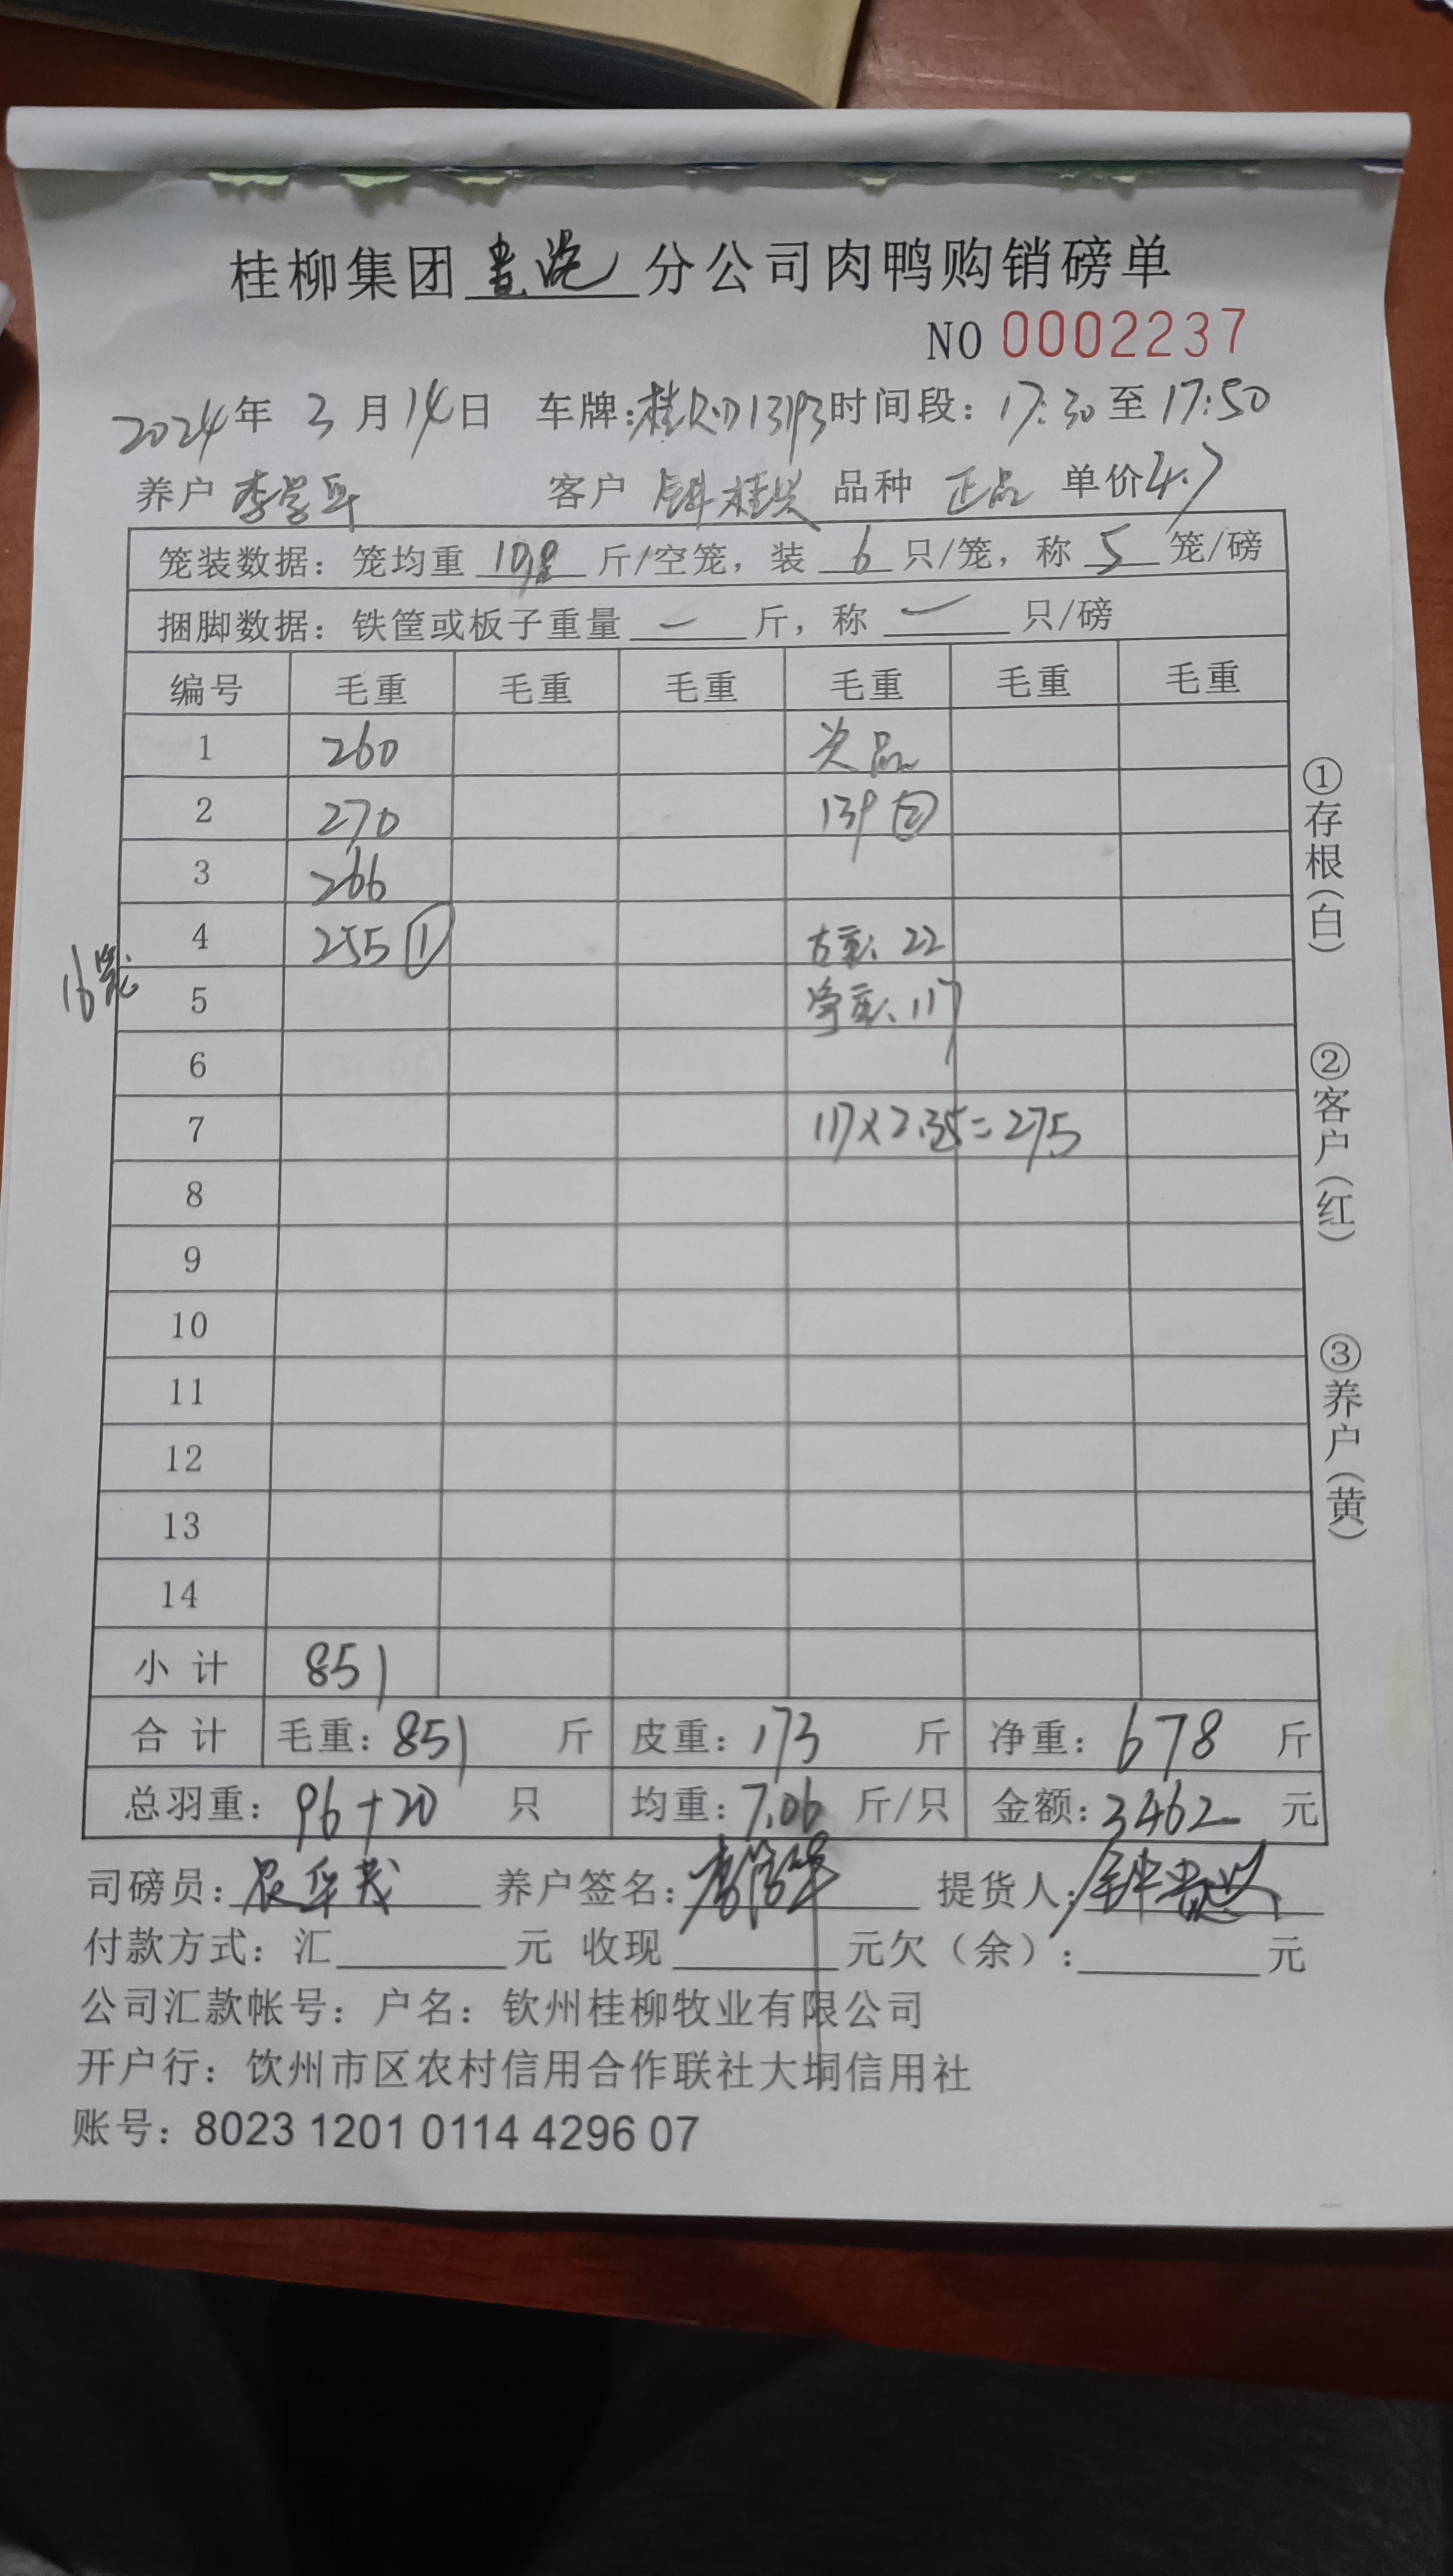 桂柳集团贵港分公司肉鸭购销磅单
NO 0002237
2024年 3月14日 车牌:桂 时间段: 17:30至17:50
养户 李学军 客户 钟桂兴 品种 正品 单价4.7
笼装数据: 笼均重 10.8 斤/空笼, 装 6 只/笼, 称 5 笼/磅
捆脚数据: 铁筐或板子重量 — 斤, 称 — 只/磅
编号 毛重 毛重 毛重 毛重 毛重 毛重
1 260 次品
2 270 139 ②
3 266
4 255 ① 皮重: 22
16笼
5 净重: 117
6
7 117×2.35=275
8
9
10
11
12
13
14
小计 851
合计 毛重: 851 斤 皮重: 173 斤 净重: 678 斤
总羽重: 96+20 只 均重: 7.06 斤/只 金额: 3462 元
司磅员: 养户签名: 提货人: 钟
付款方式: 汇 元 收现 元欠(余): 元
公司汇款帐号: 户名: 钦州桂柳牧业有限公司
开户行: 饮州市区农村信用合作联社大垌信用社
账号: 8023 1201 0114 4296 07
①存根(白)
②客户(红)
③养户(黄)